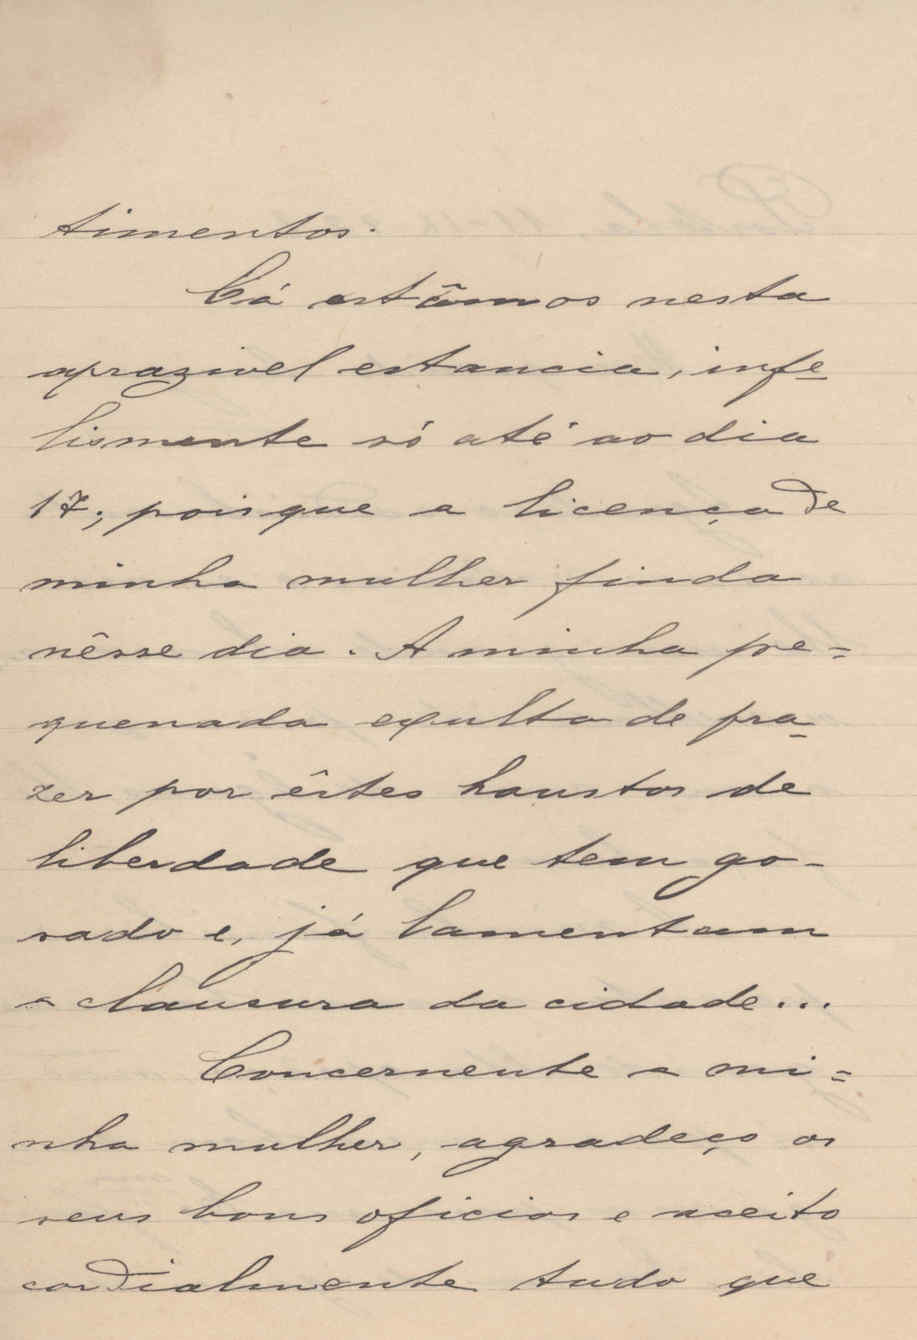 timentos.
Cá estâmos nesta
aprazivel estancia, infe-
lismente só até ao dia
17; pois que a licença de
minha mulher finda
nêsse dia. A minha pe=
quenada exulta de pra-
zer por êstes haustos de
liberdade que tem go-
sado e, já lamentam
a clausura da cidade...
Concernente a mi=
nha mulher, agradeço os
seus bons oficios e aceito
cordialmente tudo que